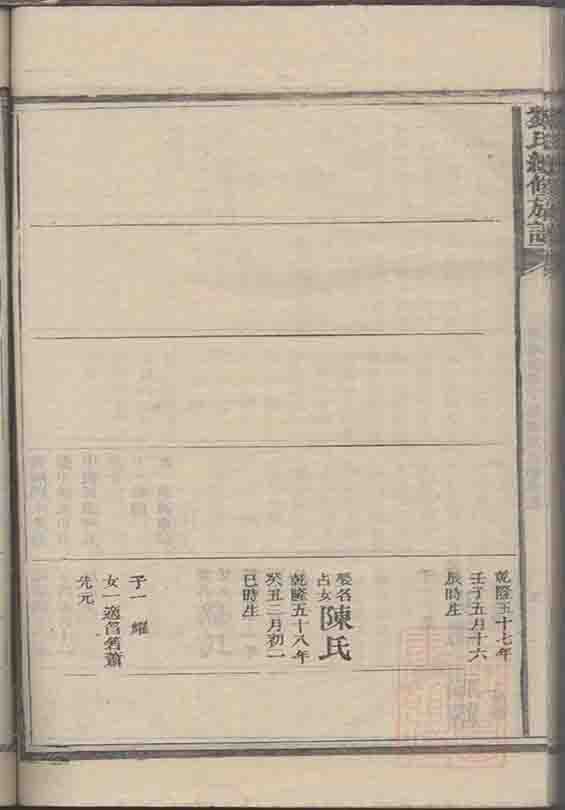 氏續修族譜
乾隆五十七年
壬子五月十六
辰時生
娶名
占女
陳氏
乾隆五十八年
癸丑二月初一
巳時生
子一 耀
女一適邑蕭
先元